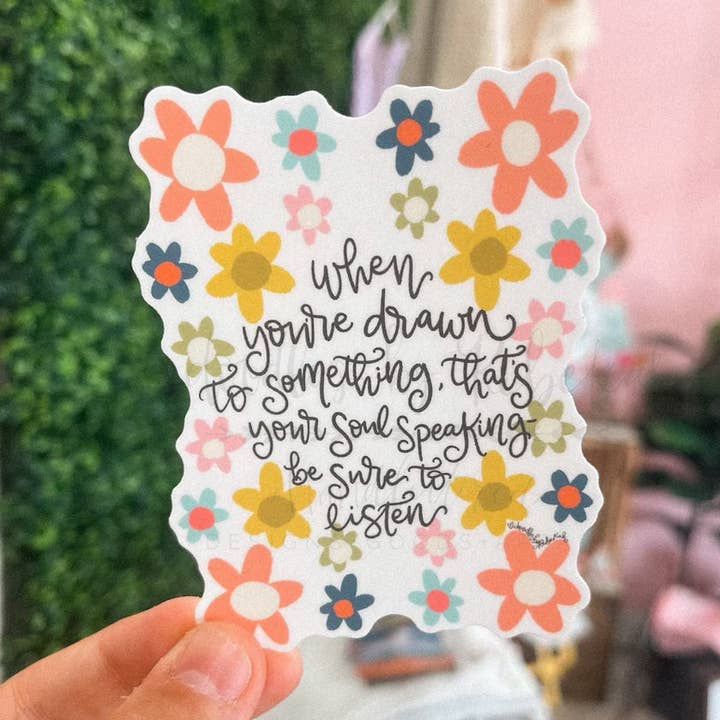 when
you're drawn
to something, that's
your soul speaking-
be sure to
listen